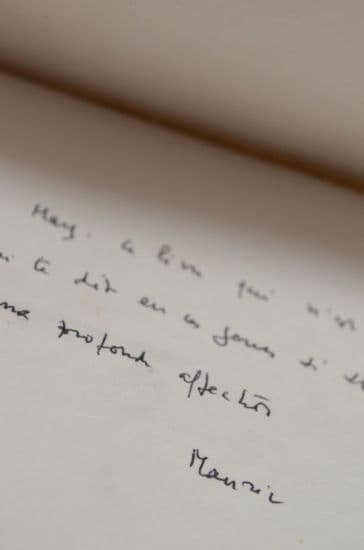 Mary, ce livre qui n'est
te dire en ces jours si
ma profonde affection
Maurice